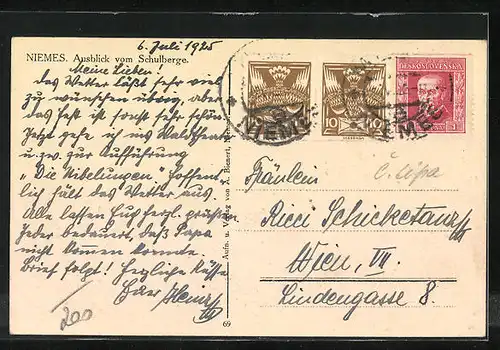 6. Juli 1925
NIEMES. Ausblick vom Schulberge.
Meine Lieben!
Das Wetter läßt sehr viel
zu wünschen übrig, aber
das Fest ist sonst sehr schön.
Jetzt gehe ich ins Waldtheater
u. zw. zur Aufführung
"Die Nibelungen" hoffent-
lich hält das Wetter aus.
Alle lassen Euch herzl. grüßen
Jeder bedauert, daß Papa
nicht kommen konnte
Brief folgt! Herzliche Küsse
Euer Heinz
200
Aufn. u. Verl. von A. Bienert,
69
ČESKOSLOVENSKÁ
10 10
NIEMES
Č. Lípa
Fräulein
Ricci Schicketanz
Wien, VII.
Lindengasse 8.